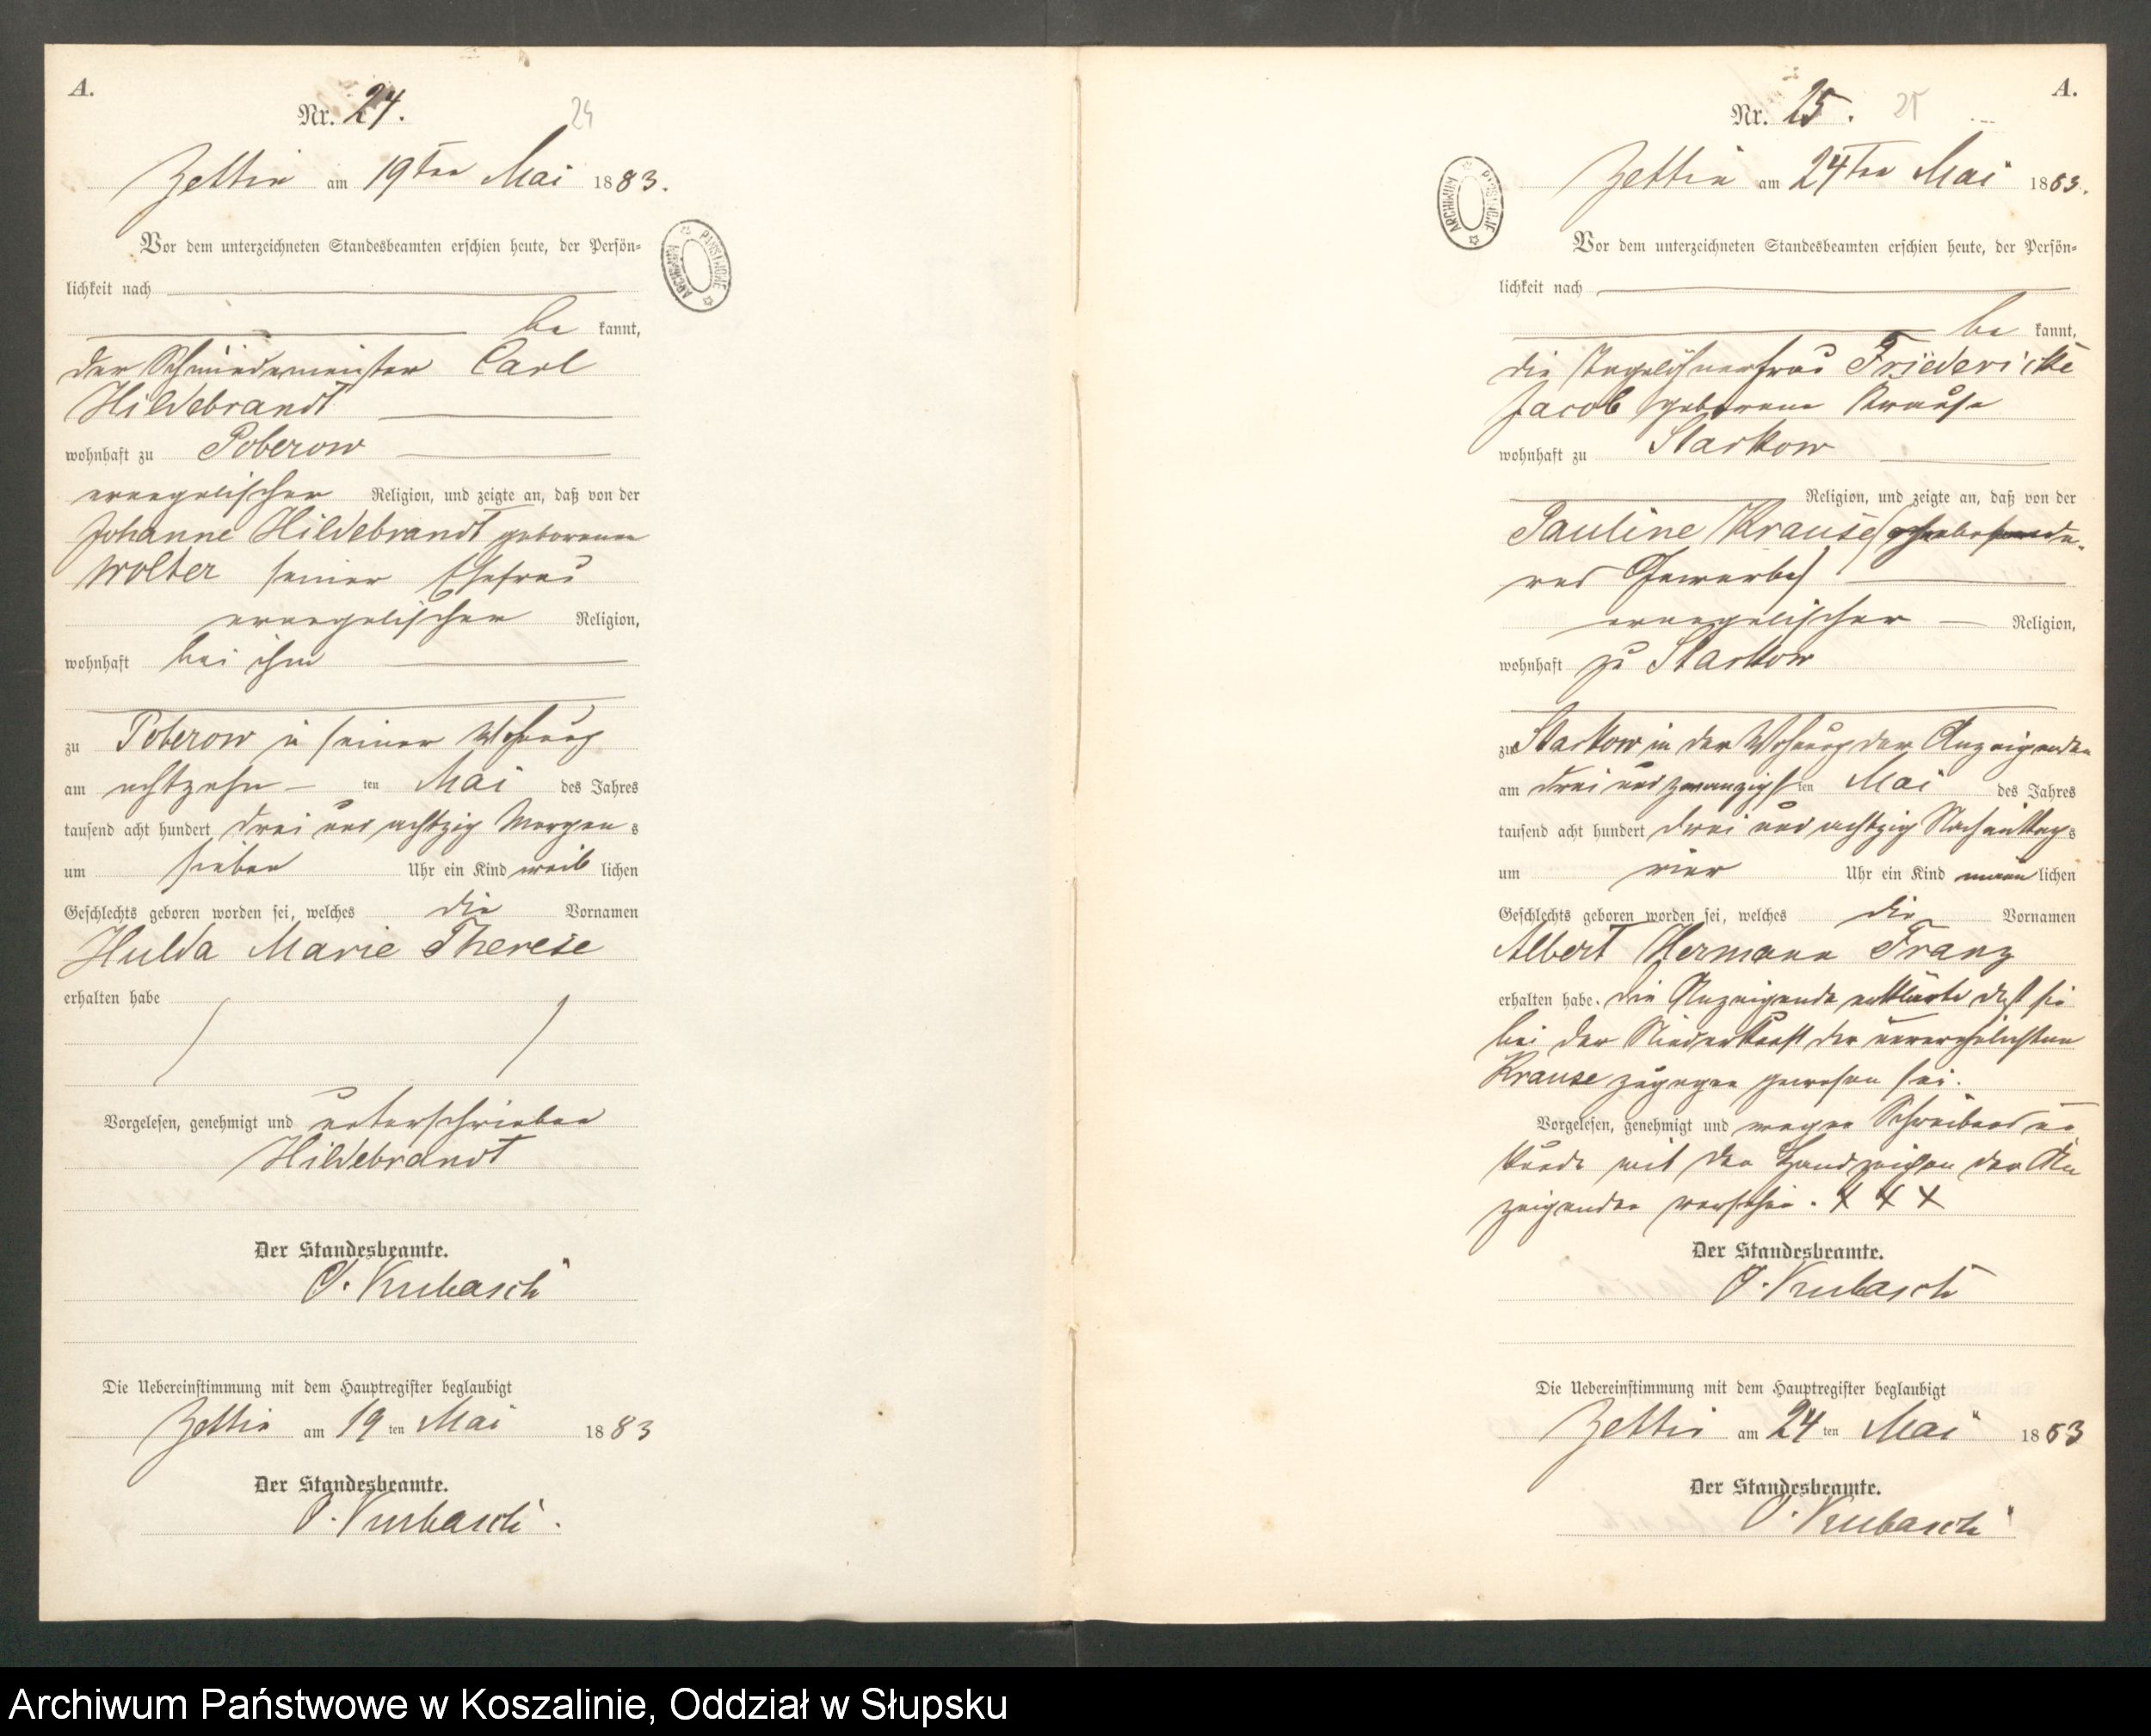 A.
Nr. 24. 24
Zettin am 19ten Mai 1883.
Vor dem unterzeichneten Standesbeamten erschien heute, der Persön-
lichkeit nach
be kannt,
der Schmiedemeister Carl
Hildebrandt
wohnhaft zu Poberow
evangelischer Religion, und zeigte an, daß von der
Johanne Hildebrandt geborenen
Wolter seiner Ehefrau
evangelischer Religion,
wohnhaft bei ihm
zu Poberow in seiner Wohnung
am achtzehn ten Mai des Jahres
tausend acht hundert drei und achtzig Morgens
um sieben Uhr ein Kind weib lichen
Geschlechts geboren worden sei, welches die Vornamen
Hulda Marie Therese
erhalten habe
Vorgelesen, genehmigt und unterschrieben
Hildebrandt
Der Standesbeamte.
O. Kubasch
Die Uebereinstimmung mit dem Hauptregister beglaubigt
Zettin am 19 ten Mai 1883
Der Standesbeamte.
O. Kubasch.
ARCHIWUM PAŃSTWOWE
A.
Nr. 25. 25
Zettin am 24ten Mai 1883.
Vor dem unterzeichneten Standesbeamten erschien heute, der Persön-
lichkeit nach
be kannt,
die Tagelöhnerfrau Friedericke
Jacob geborene Krause
wohnhaft zu Starkow
Religion, und zeigte an, daß von der
Pauline Krause (ohne
Gewerbe)
evangelischer Religion,
wohnhaft zu Starkow
zu Starkow in der Wohnung der Anzeigenden
am drei und zwanzigsten Mai des Jahres
tausend acht hundert drei und achtzig Nachmittags
um vier Uhr ein Kind männ lichen
Geschlechts geboren worden sei, welches die Vornamen
Albert Hermann Franz
erhalten habe. Die Anzeigende erklärte daß sie
bei der Niederkunft der unverehelichten
Krause zugegen gewesen sei.
Vorgelesen, genehmigt und wegen Schreibens un
kunde mit den Handzeichen der An
zeigenden versehen. X X X
Der Standesbeamte.
O. Kubasch
Die Uebereinstimmung mit dem Hauptregister beglaubigt
Zettin am 24 ten Mai 1883
Der Standesbeamte.
O. Kubasch
ARCHIWUM PAŃSTWOWE
Archiwum Państwowe w Koszalinie, Oddział w Słupsku